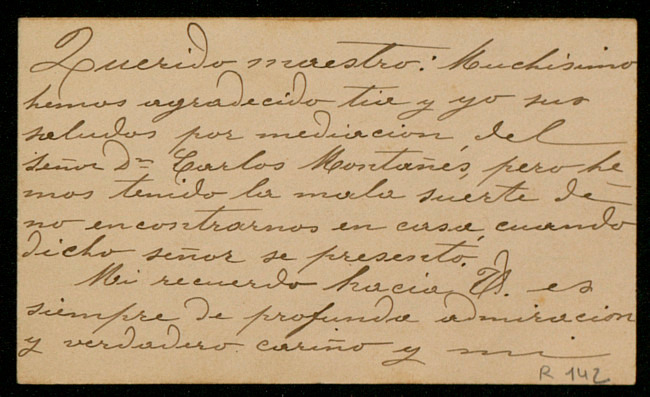 Querido maestro: Muchisimo
hemos agradecido tia y yo sus
saludos por mediacion del
señor Dn Carlos Montañés, pero he-
mos tenido la mala suerte de
no encontrarnos en casa cuando
dicho señor se presentó.
Mi recuerdo hacia V. es
siempre de profunda admiracion
y verdadero cariño y mi
R 142